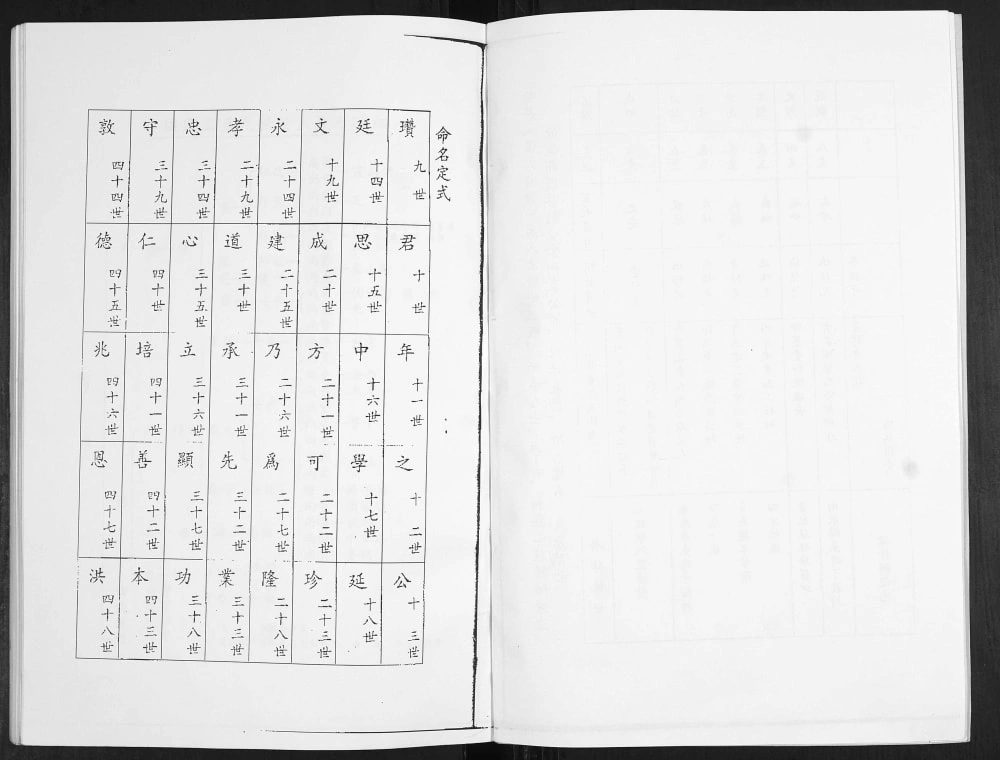 命名定式
瓚 九世
君 十世
年 十一世
之 十二世
公 十三世
廷 十四世
思 十五世
中 十六世
學 十七世
延 十八世
文 十九世
成 二十世
方 二十一世
可 二十二世
珍 二十三世
永 二十四世
建 二十五世
乃 二十六世
爲 二十七世
隆 二十八世
孝 二十九世
道 三十世
承 三十一世
先 三十二世
業 三十三世
忠 三十四世
心 三十五世
立 三十六世
顯 三十七世
功 三十八世
守 三十九世
仁 四十世
培 四十一世
善 四十二世
本 四十三世
敦 四十四世
德 四十五世
兆 四十六世
恩 四十七世
洪 四十八世